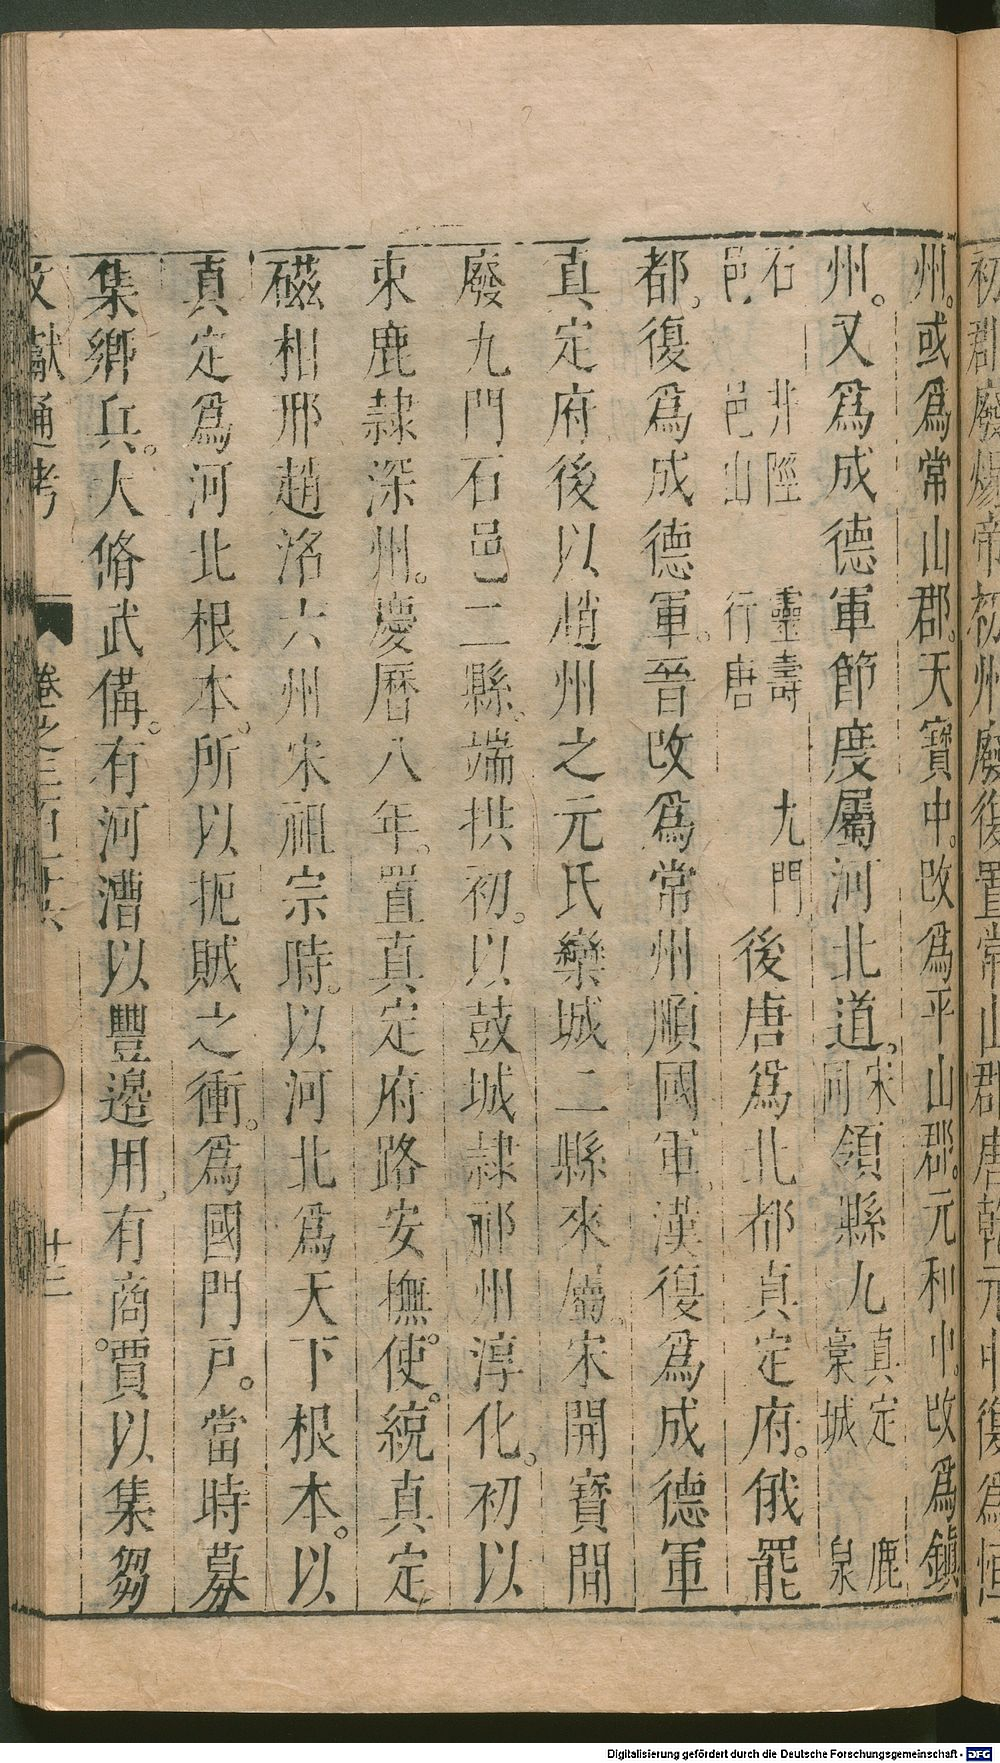 初郡廢煬帝初州廢復置常山郡唐乾元中復為恒
州。或為常山郡。天寶中。改為平山郡。元和中。改為鎮
州。又為成德軍節度屬河北道。宋同領縣九真定 槀城 鹿泉
石邑 井陘 邑山 靈壽 行唐 九門後唐為北都真定府。俄罷
都。復為成德軍。晉改為常州順國軍漢復為成德軍
真定府後以趙州之元氏欒城二縣來屬。宋開寶間
廢九門石邑二縣。端拱初。以鼓城隸祁州淳化。初以
束鹿隸深州。慶曆八年。置真定府路安撫使。統真定
磁相邢趙洺六州宋祖宗時。以河北為天下根本。以
真定為河北根本。所以扼賊之衝。為國門戶。當時募
集鄉兵。大脩武備。有河漕以豐邊用。有商賈以集芻
文獻通考 卷之三百十六 廿三
Digitalisierung gefördert durch die Deutsche Forschungsgemeinschaft - DFG